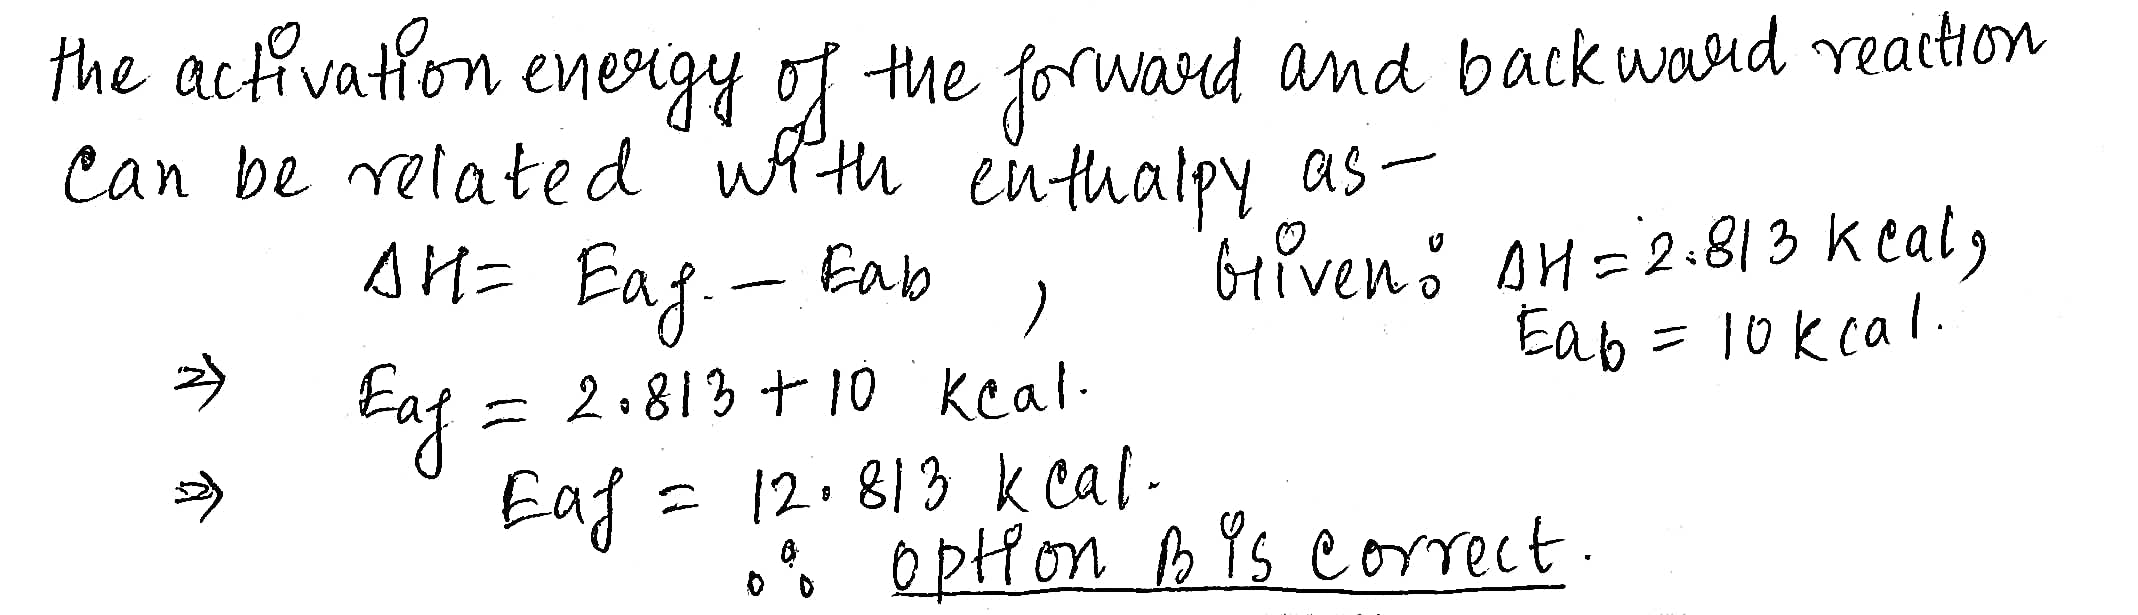 the activation energy of the forward and backward reaction
can be related with enthalpy as -
ΔH = Eaf. - Eab , Given: ΔH = 2.813 kcal,
Eab = 10 kcal.
⇒ Eaf = 2.813 + 10 kcal.
⇒ Eaf = 12.813 kcal.
∴ option B is correct.